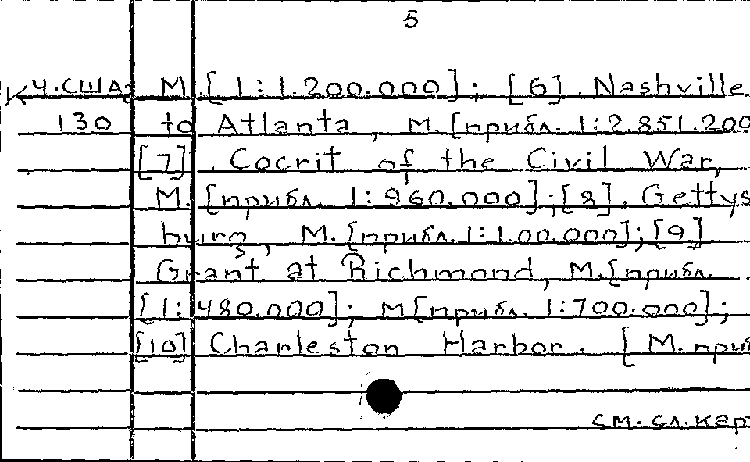 5
К ч.США; М.[ 1:1.200.000]; [6]. Nashville
130 to Atlanta, М.[прибл. 1:2.851.200
[7]. Cocrit of the Civil War,
М.[прибл. 1:960.000];[8]. Gettys
burg, М.[прибл. 1:100.000];[9]
Grant at Richmond, М.[прибл.
[1:480.000]; М[прибл. 1:700.000];
[10] Charleston Harbor. [ М. приб
см.сл.кар